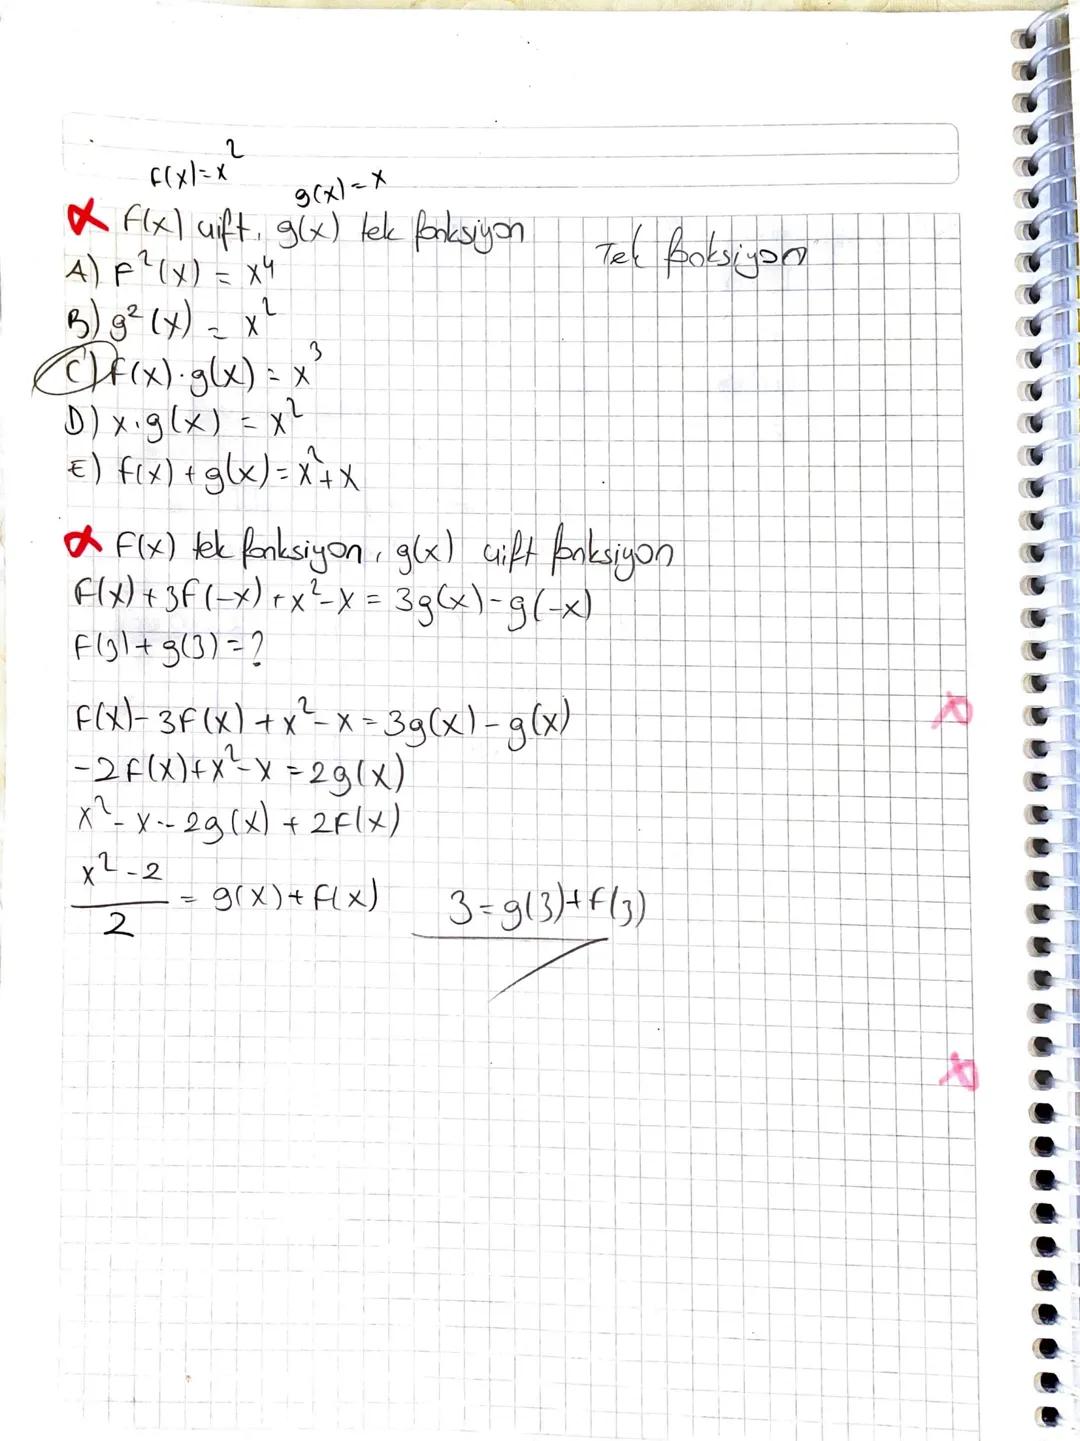 f(x)=x²
g(x)=x
f(x) çift, g(x) tek fonksiyon
Tek fonksiyon
A) F²(x) = x⁴
B) g²(x) = x²
C) f(x)·g(x) = x³
D) x·g(x) = x²
E) f(x)+g(x)=x²+x
F(x) tek fonksiyon, g(x) çift fonksiyon
F(x)+3f(-x)+x²-x=3g(x)-g(-x)
F(3)+g(3)=?
f(x)-3f(x)+x²-x=3g(x)-g(x)
-2f(x)+x²-x=2g(x)
x²-x=2g(x)+2f(x)
x²-2
—— = g(x)+f(x)
2
3=g(3)+f(3)